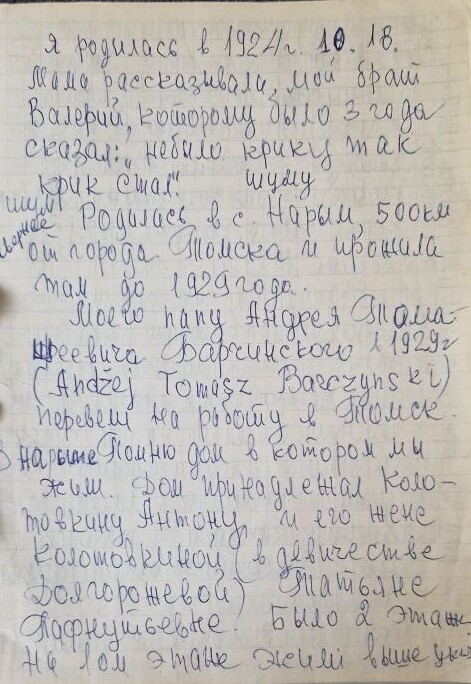 я родилась в 1924г. 10. 18.
Мама рассказывала, мой брат
Валерий, которому было 3 года
сказал: „небыло крику так
крик стал". шуму
шум вернее
Родилась в с. Нарым, 500км
от города Томска и прожила
там до 1929 года.
Моего папу Андрея Тома-
шеевича Барчинского в 1929г
(Andżej Tomasz Barczynski)
перевели на работу в Томск.
в Нарыме Помню дом в котором мы
жили. Дом принадлежал Коло-
товкину Антону и его жене
Колотовкиной (в девичестве
Долгорожевой) Татьяне
Пафнутьевне. Было 2 этаж
На 1ом этаже жили выше ука